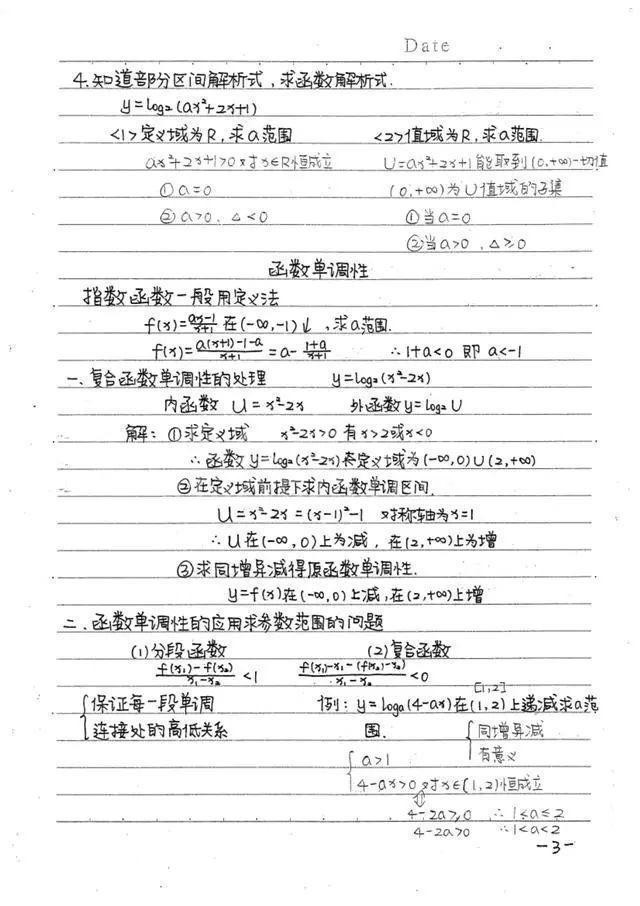 Date
4.知道部分区间解析式,求函数解析式.
y=log₂(ax²+2x+1)
<1>定义域为R,求a范围 <2>值域为R,求a范围.
ax²+2x+1>0对x∈R恒成立 U=ax²+2x+1能取到(0,+∞)一切值
①a=0 (0,+∞)为U值域的子集
②a>0、△<0 ①当a=0
②当a>0、△≥0
函数单调性
指数函数一般用定义法
f(x)=(ax-1)/(x+1)在(-∞,-1)↓,求a范围.
f(x)=(a(x+1)-1-a)/(x+1)=a-(1+a)/(x+1) ∴1+a<0 即 a<-1
一.复合函数单调性的处理 y=log₂(x²-2x)
内函数 U=x²-2x 外函数y=log₂U
解:①求定义域 x²-2x>0 有x>2或x<0
∴函数y=log₂(x²-2x)定义域为(-∞,0)∪(2,+∞)
②在定义域前提下求内函数单调区间.
U=x²-2x=(x-1)²-1 对称轴为x=1
∴U在(-∞,0)上为减,在(2,+∞)上为增
③求同增异减得原函数单调性.
y=f(x)在(-∞,0)上减,在(2,+∞)上增
二.函数单调性的应用求参数范围的问题
(1)分段函数 (2)复合函数
(f(x₁)-f(x₂))/(x₁-x₂)<1 (f(x₁)-x₁-(f(x₂)-x₂))/(x₁-x₂)<0
[1,2]
{保证每一段单调 例:y=logₐ(4-ax)在(1,2)上递减求a范
连接处的高低关系 围. {同增异减
{a>1 有意义
4-ax>0对x∈[1,2)恒成立
⇕
4-2a≥0 ∴1<a≤2
4-2a>0 ∴1<a<2
-3-